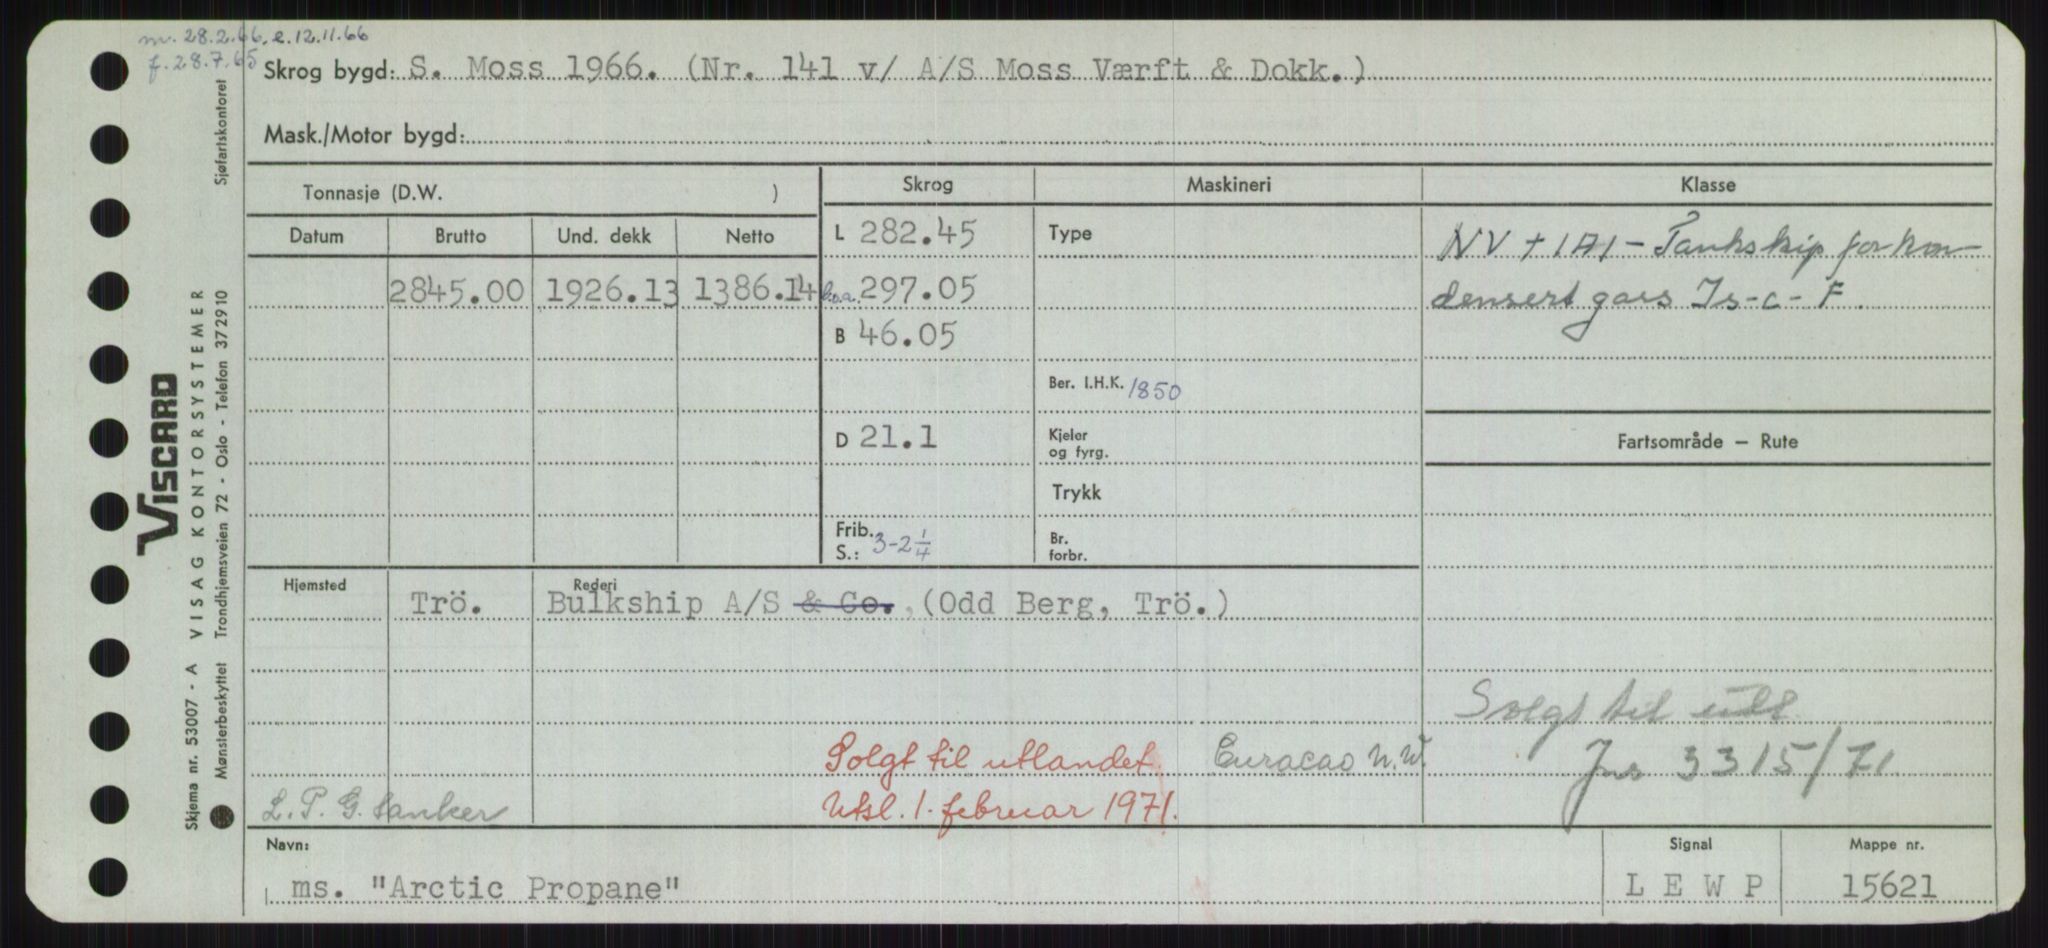 m. 28.2.66. e. 12.11.66
f. 28.7.65
Skrog bygd: S. Moss 1966. (Nr. 141 v/ A/S Moss Værft & Dokk.)
Mask./Motor bygd:
Tonnasje (D.W. )
Skrog
Maskineri
Klasse
Datum Brutto Und. dekk Netto
L 282.45
Type
NV + 1A1 - Tankskip for kon-
2845.00 1926.13 1386.14
b.o.a. 297.05
densert gass Is-C - F.
B 46.05
Ber. I.H.K. 1850
D 21.1
Kjeler
og fyrg.
Fartsområde – Rute
Trykk
Frib.
S.: 3-2 1/4
Br.
forbr.
Hjemsted
Rederi
Trö. Bulkship A/S & Co., (Odd Berg, Trö.)
Solgt til utl.
Solgt til utlandet. Curacao N.W.
Jnr 3315/71
L.P.G. tanker
Utsl. 1. februar 1971.
Navn:
ms. "Arctic Propane"
Signal
L E W P
Mappe nr.
15621
Skjema nr. 53007 - A VISAG KONTORSYSTEMER
Mønsterbeskyttet Trondhjemsveien 72 - Oslo - Telefon 372910 Sjøfartskontoret
VISCARD